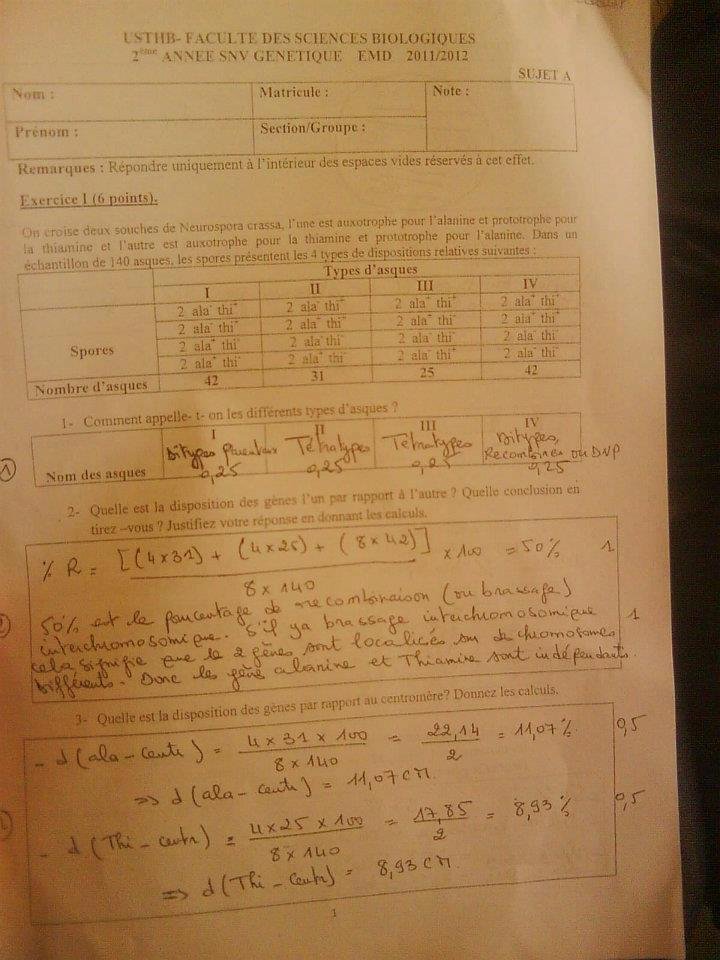 USTHB- FACULTE DES SCIENCES BIOLOGIQUES
2ème ANNEE SNV GENETIQUE EMD 2011/2012
SUJET A
Nom : Matricule : Note :
Prénom : Section/Groupe :
Remarques : Répondre uniquement à l'intérieur des espaces vides réservés à cet effet.
Exercice I (6 points).
On croise deux souches de Neurospora crassa, l'une est auxotrophe pour l'alanine et prototrophe pour
la thiamine et l'autre est auxotrophe pour la thiamine et prototrophe pour l'alanine. Dans un
échantillon de 140 asques, les spores présentent les 4 types de dispositions relatives suivantes :
Types d'asques
I II III IV
Spores
2 ala- thi+ 2 ala- thi+
2 ala- thi+
2 ala+ thi- 2 ala+ thi-
Nombre d'asques 42 31 25 42
1- Comment appelle- t- on les différents types d'asques ?
I II III IV
Nom des asques Ditypes Parentaux Tétratypes Tétratypes Ditypes, Recombinés ou DNP
0,25 0,25 0,25 0,25
1
2- Quelle est la disposition des gènes l'un par rapport à l'autre ? Quelle conclusion en
tirez –vous ? Justifiez votre réponse en donnant les calculs.
% R = [(4x31) + (4x25) + (8x42)] x100 = 50% 1
8 x 140
50% est le pourcentage de recombinaison (ou brassage)
interchromosomique. S'il ya brassage interchromosomique
cela signifie que le 2 gènes sont localisés sur de chromosomes 1
différents. Donc les gène alanine et Thiamine sont indépendants.
3- Quelle est la disposition des gènes par rapport au centromère? Donnez les calculs.
- d (ala - centr) = 4 x 31 x 100 = 22,14 = 11,07 %. 0,5
8 x 140 2
=> d (ala - centr) = 11,07 cM.
- d (Thi - centr) = 4x25 x 100 = 17,85 = 8,93 % 0,5
8 x 140 2
=> d (Thi - Centr) = 8,93 cM.
1